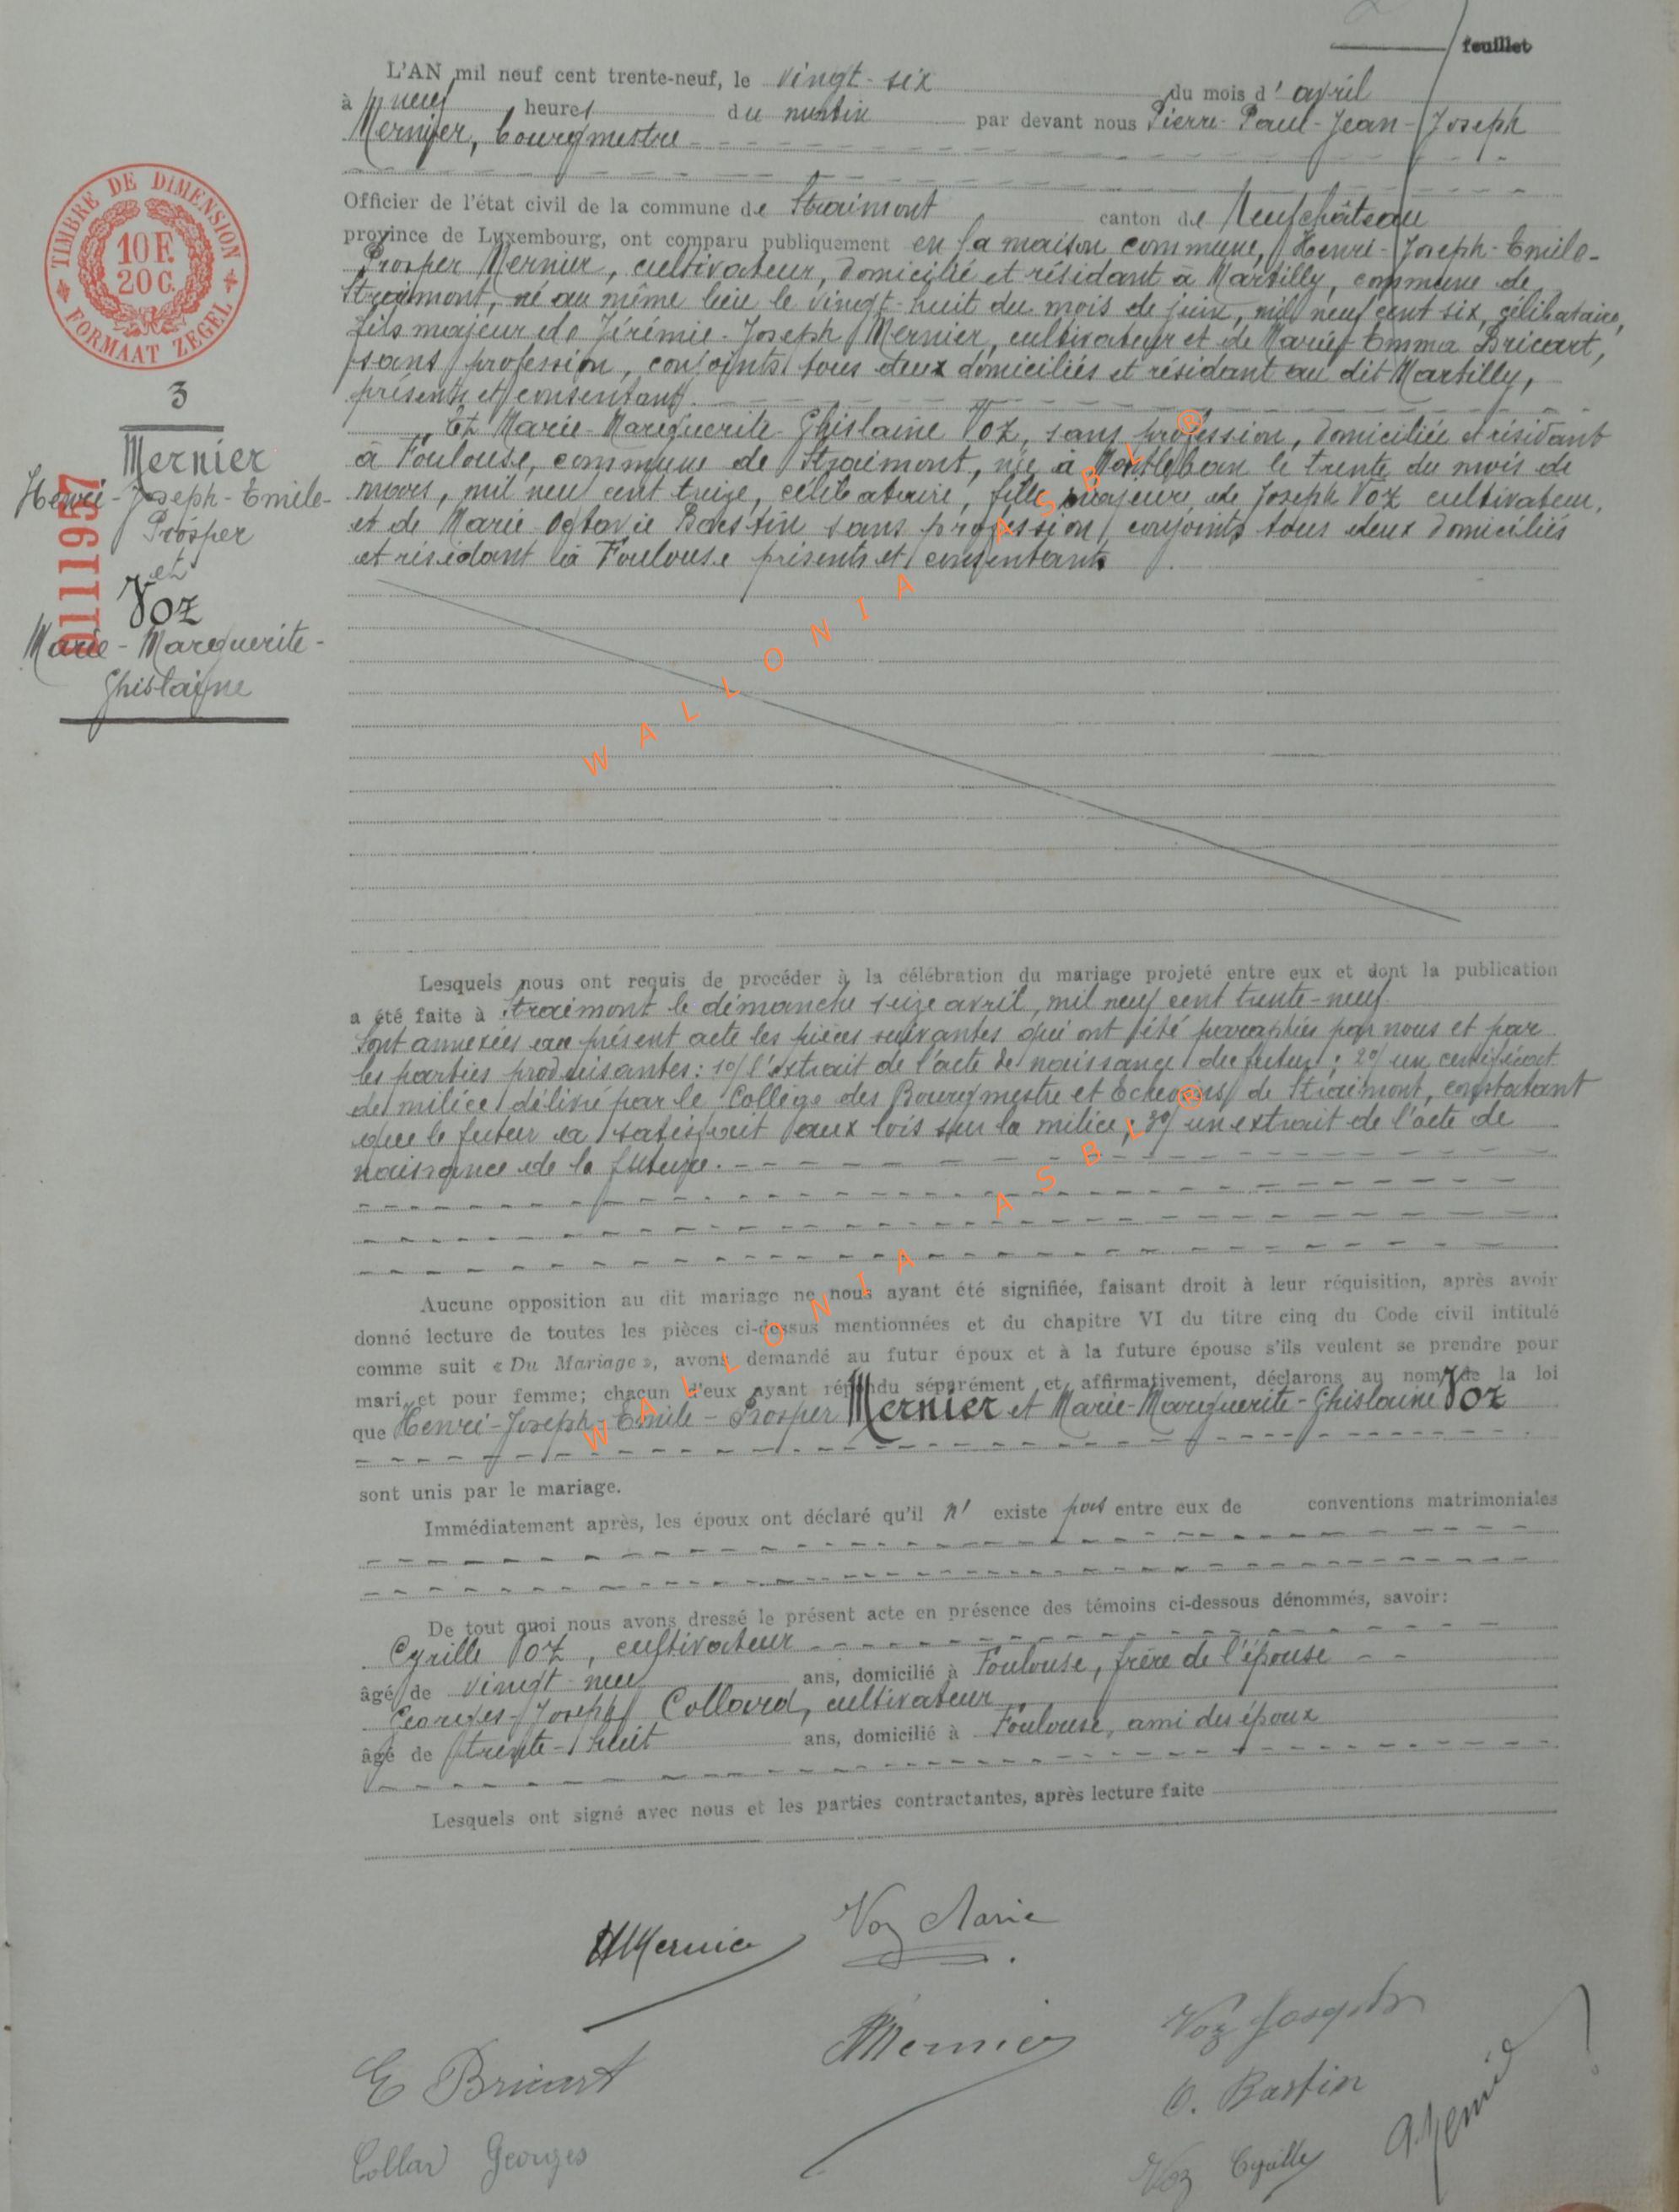 feuillet
L'AN mil neuf cent trente-neuf, le vingt-six du mois d' avril
à neuf heures du matin par devant nous Pierre-Paul-Jean-Joseph
Mernier, bourgmestre
Officier de l'état civil de la commune de Straimont canton de Neufchâteau
province de Luxembourg, ont comparu publiquement en la maison commune, Henri-Joseph-Emile-
Prosper Mernier, cultivateur, domicilié et résidant à Martilly, commune de
Straimont, né au même lieu le vingt-huit du mois de juin, mil neuf cent six, célibataire,
fils majeur de Jérémie-Joseph Mernier, cultivateur et de Marie-Emma Bricart,
sans profession, conjoints tous deux domiciliés et résidant au dit Martilly,
présents et consentant.
Et Marie-Marguerite-Ghislaine Voz, sans profession, domiciliée et résidant
à Foulouse, commune de Straimont, née à Montleban le trente du mois de
mars, mil neuf cent treize, célibataire, fille majeure de Joseph Voz cultivateur,
et de Marie Octavie Bastin sans profession, conjoints tous deux domiciliés
et résidant à Foulouse présents et consentants
TIMBRE DE DIMENSION
10 F.
20 C.
FORMAAT ZEGEL
3
Mernier
Henri-Joseph-Emile-
Prosper
et
Voz
Marie-Marguerite-
Ghislaine
0111957
WALLONIA ASBL ®
Lesquels nous ont requis de procéder à la célébration du mariage projeté entre eux et dont la publication
a été faite à Straimont le dimanche seize avril, mil neuf cent trente-neuf.
Sont annexées au présent acte les pièces suivantes qui ont été paraphées par nous et par
les parties produisantes: 1o/ l'extrait de l'acte de naissance du futur; 2o/ un certificat
de milice délivré par le Collège des Bourgmestre et Echevins de Straimont, constatant
que le futur a satisfait aux lois sur la milice; 3o/ un extrait de l'acte de
naissance de la future.
Aucune opposition au dit mariage ne nous ayant été signifiée, faisant droit à leur réquisition, après avoir
donné lecture de toutes les pièces ci-dessus mentionnées et du chapitre VI du titre cinq du Code civil intitulé
comme suit « Du Mariage », avons demandé au futur époux et à la future épouse s'ils veulent se prendre pour
mari et pour femme; chacun d'eux ayant répondu séparément et affirmativement, déclarons au nom de la loi
que Henri-Joseph-Emile-Prosper Mernier et Marie-Marguerite-Ghislaine Voz
WALLONIA ASBL ®
sont unis par le mariage.
Immédiatement après, les époux ont déclaré qu'il n' existe pas entre eux de conventions matrimoniales
De tout quoi nous avons dressé le présent acte en présence des témoins ci-dessous dénommés, savoir:
Cyrille Voz, cultivateur
âgé de vingt-neuf ans, domicilié à Foulouse, frère de l'épouse
Georges-Joseph Collard, cultivateur
âgé de trente-huit ans, domicilié à Foulouse, ami des époux
Lesquels ont signé avec nous et les parties contractantes, après lecture faite
HMernier Voz Marie
Mernier Voz Joseph
E Bricart O. Bastin
Collar Georges Voz Cyrille